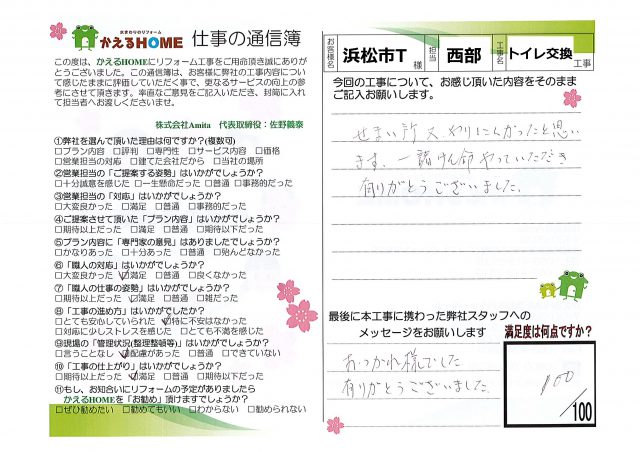 水まわりのリフォーム
かえるHOME 仕事の通信簿
この度は、かえるHOMEにリフォーム工事をご用命頂き誠にありが
とうございました。この通信簿は、お客様に弊社の工事内容につい
て感じたままに評価していただく事で、更なるサービスの向上の参
考にさせて頂きます。率直なご意見をご記入いただき、封筒に入れ
て担当者へお渡しくださいませ。
株式会社Amita 代表取締役：佐野義泰
①弊社を選んで頂いた理由は何ですか?(複数可)
□プラン内容 □評判 □専門性 □サービス内容 □価格
□営業担当の対応 □建てた会社だから □当社の場所
②営業担当の「ご提案する姿勢」はいかがでしょうか?
□十分誠意を感じた □一生懸命だった □普通 □事務的だった
③営業担当の「対応」はいかがでしょうか?
□大変良かった □満足 □普通 □事務的だった
④ご提案させて頂いた「プラン内容」はいかがでしょうか?
□期待以上だった □満足 □普通 □期待以下だった
⑤プラン内容に「専門家の意見」はありましたでしょうか?
□かなりあった □十分あった □普通 □殆んどなかった
⑥「職人の対応」はいかがでしょうか?
□大変良かった ☑満足 □普通 □良くなかった
⑦「職人の仕事の姿勢」はいかがでしょうか?
□期待以上だった □満足 □普通 □雑だった
⑧「工事の進め方」はいかがでしたか?
□とても安心していられた ☑特に不安はなかった
□対応に少しストレスを感じた □とても不満を感じた
⑨現場の「管理状況(整理整頓等)」はいかがでしょうか?
□言うことなし ☑配慮があった □普通 □できていない
⑩「工事の仕上がり」はいかがでしょうか?
□期待以上だった ☑満足 □普通 □期待以下だった
⑪もし、お知り合いにリフォームの予定がありましたら
かえるHOMEを「お勧め」頂けますでしょうか?
□ぜひ勧めたい □勧めてもいい □わからない □勧められない
お客様名 浜松市T 様 担当 西部 工事名 トイレ交換 工事
今回の工事について、お感じ頂いた内容をそのまま
ご記入お願いします。
せまい所で、やりにくかったと思い
ます。一諸けん命やっていただき
有りがとうございました。
最後に本工事に携わった弊社スタッフへの
メッセージをお願いします
おつかれ様でした
有りがとうございました。
満足度は何点ですか?
100
/100